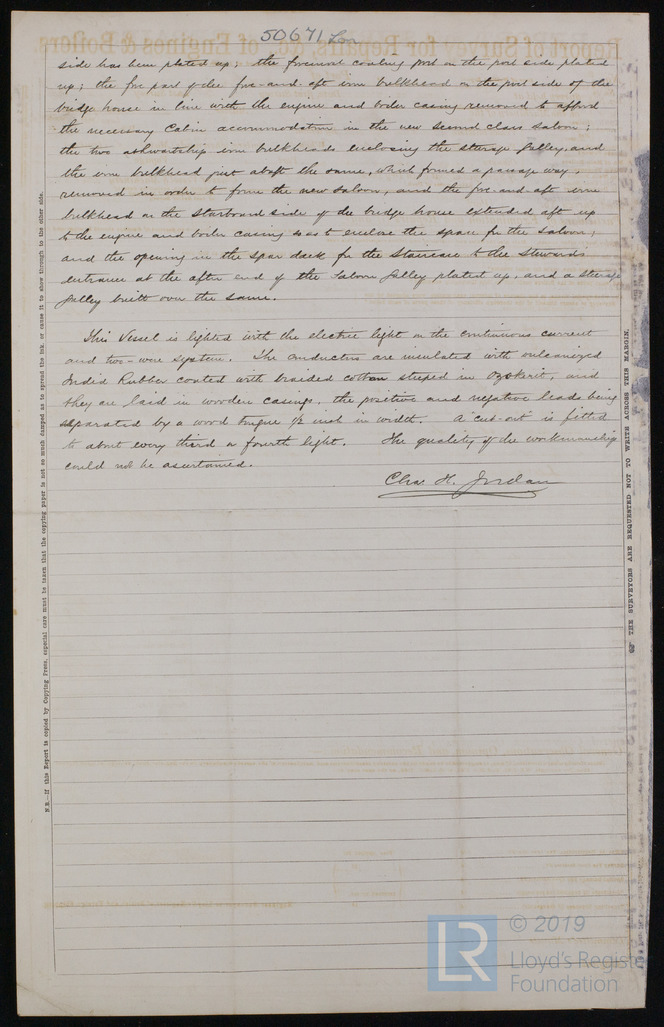 50671 Lon
side has been plated up; the foremost coaling port on the port side plated
up; the fore part of the fore-and-aft iron bulkhead on the port side of the
bridge house in line with the engine and boiler casing removed to afford
the necessary Cabin accommodation in the new second class saloon;
the two athwartship iron bulkheads enclosing the steerage galley, and
the iron bulkhead just abaft the same, which formed a passage way,
removed in order to form the new saloon; and the fore-and-aft iron
bulkhead on the starboard side of the bridge house extended aft up
to the engine and boiler casing so as to enclose the space for the saloon;
and the opening in the spar deck for the staircase to the steward's
entrance at the after end of the saloon galley plated up, and a steerage
galley built over the same.
This Vessel is lighted with the electric light on the continuous current
and two-wire system. The conductors are insulated with vulcanized
India Rubber coated with braided cotton steeped in Ozokerit, and
they are laid in wooden casings, the positive and negative leads being
separated by a wood tongue 1/2 inch in width. A "cut-out" is fitted
to about every third or fourth light. The quality of the workmanship
could not be ascertained.
Chas H. Jordan
N.B.—If this Report is copied by Copying Press, especial care must be taken that the copying paper is not so much damped as to spread the ink, or cause it to show through to the other side.
THE SURVEYORS ARE REQUESTED NOT TO WRITE ACROSS THIS MARGIN.
LR
© 2019
Lloyd's Register
Foundation